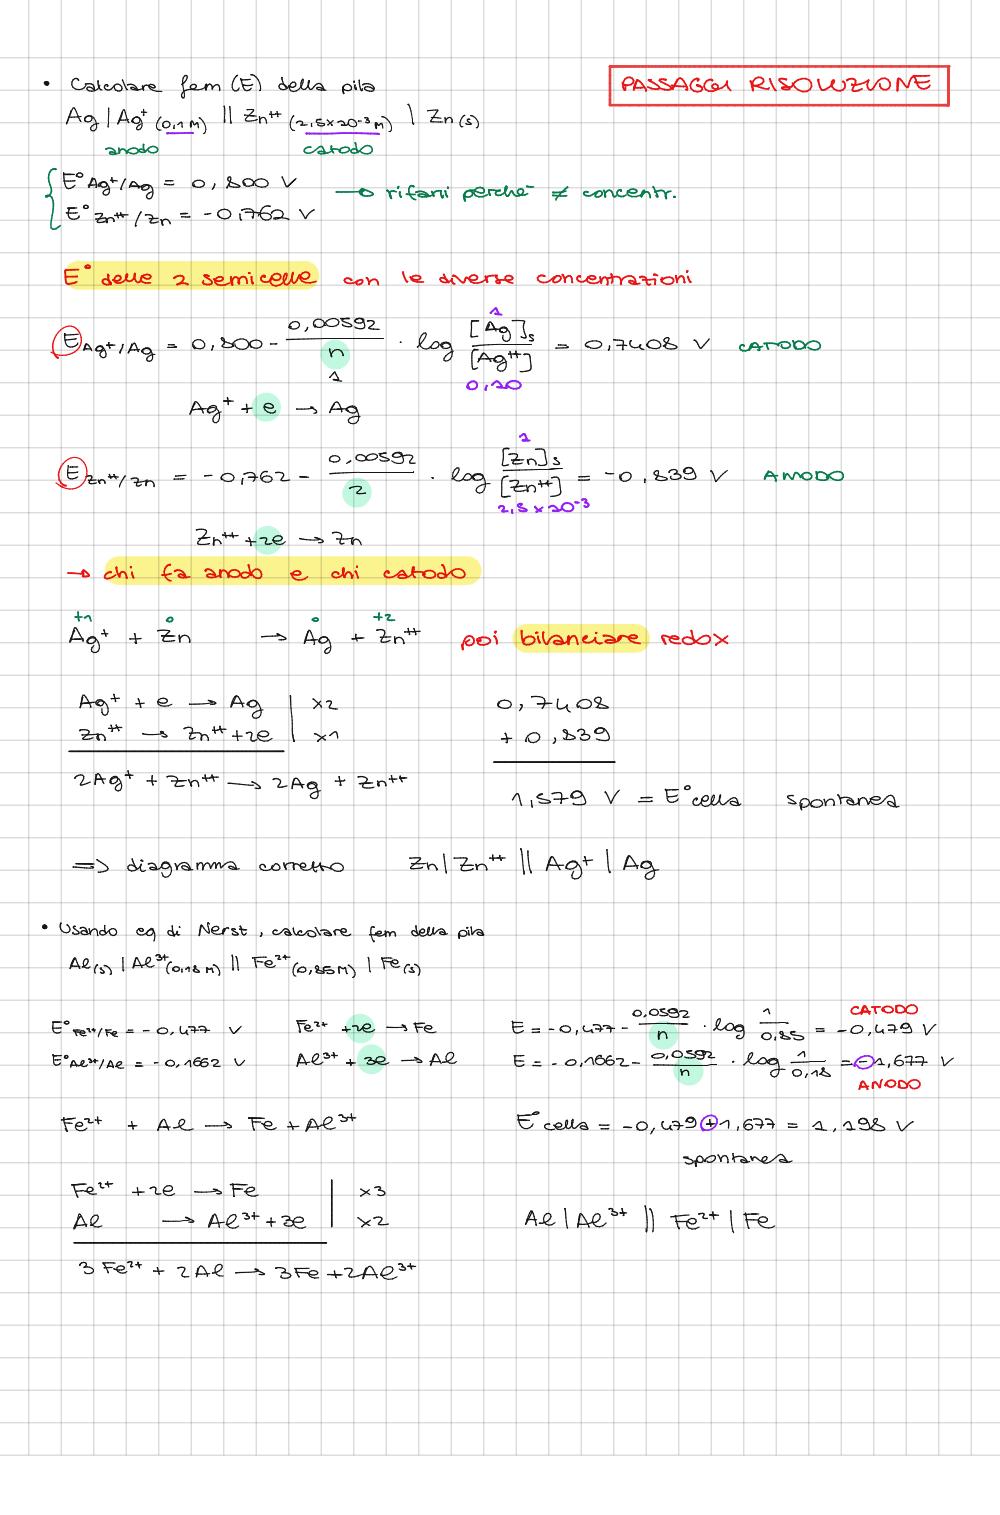 • Calcolare fem (E) della pila
PASSAGGI RISOLUZIONE
Ag | Ag⁺ (0,1 M) || Zn⁺⁺ (2,5×10⁻³ M) | Zn (s)
anodo catodo
E° Ag⁺/Ag = 0,800 V
→ rifarli perché ≠ concentr.
E° Zn⁺⁺/Zn = -0,762 V
E° delle 2 semicelle con le diverse concentrazioni
E Ag⁺/Ag = 0,800 - 0,00592/n · log [Ag]s/[Ag⁺⁺] = 0,7408 V CATODO
1
1 0,10
Ag⁺ + e → Ag
E Zn⁺⁺/Zn = -0,762 - 0,00592/2 · log [Zn]s/[Zn⁺⁺] = -0,839 V ANODO
1
2,5 × 10⁻³
Zn⁺⁺ + 2e → Zn
→ chi fa anodo e chi catodo
+1 0 0 +2
Ag⁺ + Zn → Ag + Zn⁺⁺ poi bilanciare redox
Ag⁺ + e → Ag | ×2
Zn⁺⁺ → Zn⁺⁺ + 2e | ×1
2Ag⁺ + Zn⁺⁺ → 2Ag + Zn⁺⁺
0,7408
+ 0,839
1,579 V = E° cella spontanea
=> diagramma corretto Zn | Zn⁺⁺ || Ag⁺ | Ag
• Usando eq di Nerst, calcolare fem della pila
Al(s) | Al³⁺ (0,18 M) || Fe²⁺ (0,85 M) | Fe(s)
E° Fe²⁺/Fe = -0,477 V Fe²⁺ + 2e → Fe
E° Al³⁺/Al = -0,1662 V Al³⁺ + 3e → Al
CATODO
E = -0,477 - 0,0592/n · log 1/0,85 = -0,479 V
E = -0,1662 - 0,0592/n · log 1/0,18 = -1,677 V
ANODO
Fe²⁺ + Al → Fe + Al³⁺
E° cella = -0,479 + 1,677 = 1,198 V
spontanea
Fe²⁺ + 2e → Fe | ×3
Al → Al³⁺ + 3e | ×2
3 Fe²⁺ + 2Al → 3Fe + 2Al³⁺
Al | Al³⁺ || Fe²⁺ | Fe